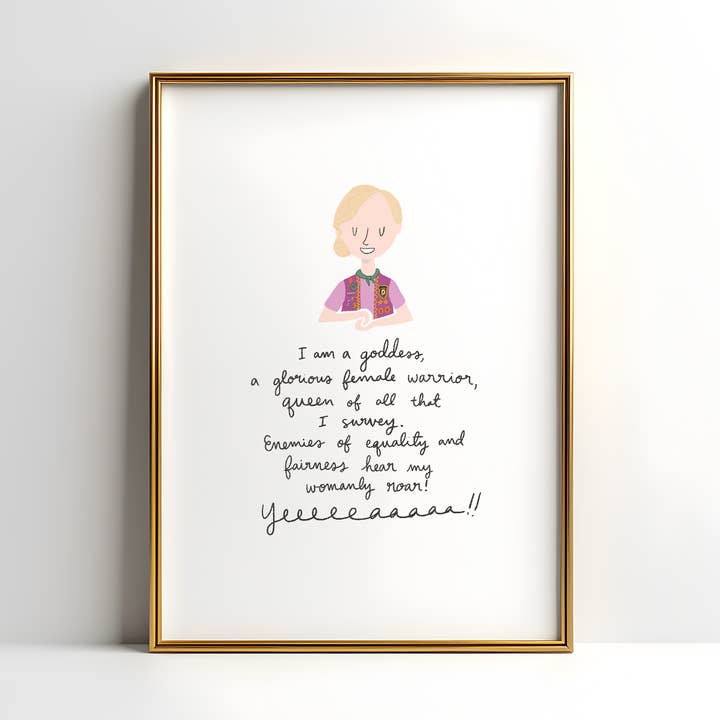 I am a goddess,
a glorious female warrior,
queen of all that
I survey.
Enemies of equality and
fairness hear my
womanly roar!
Yeeeeeaaaaa!!